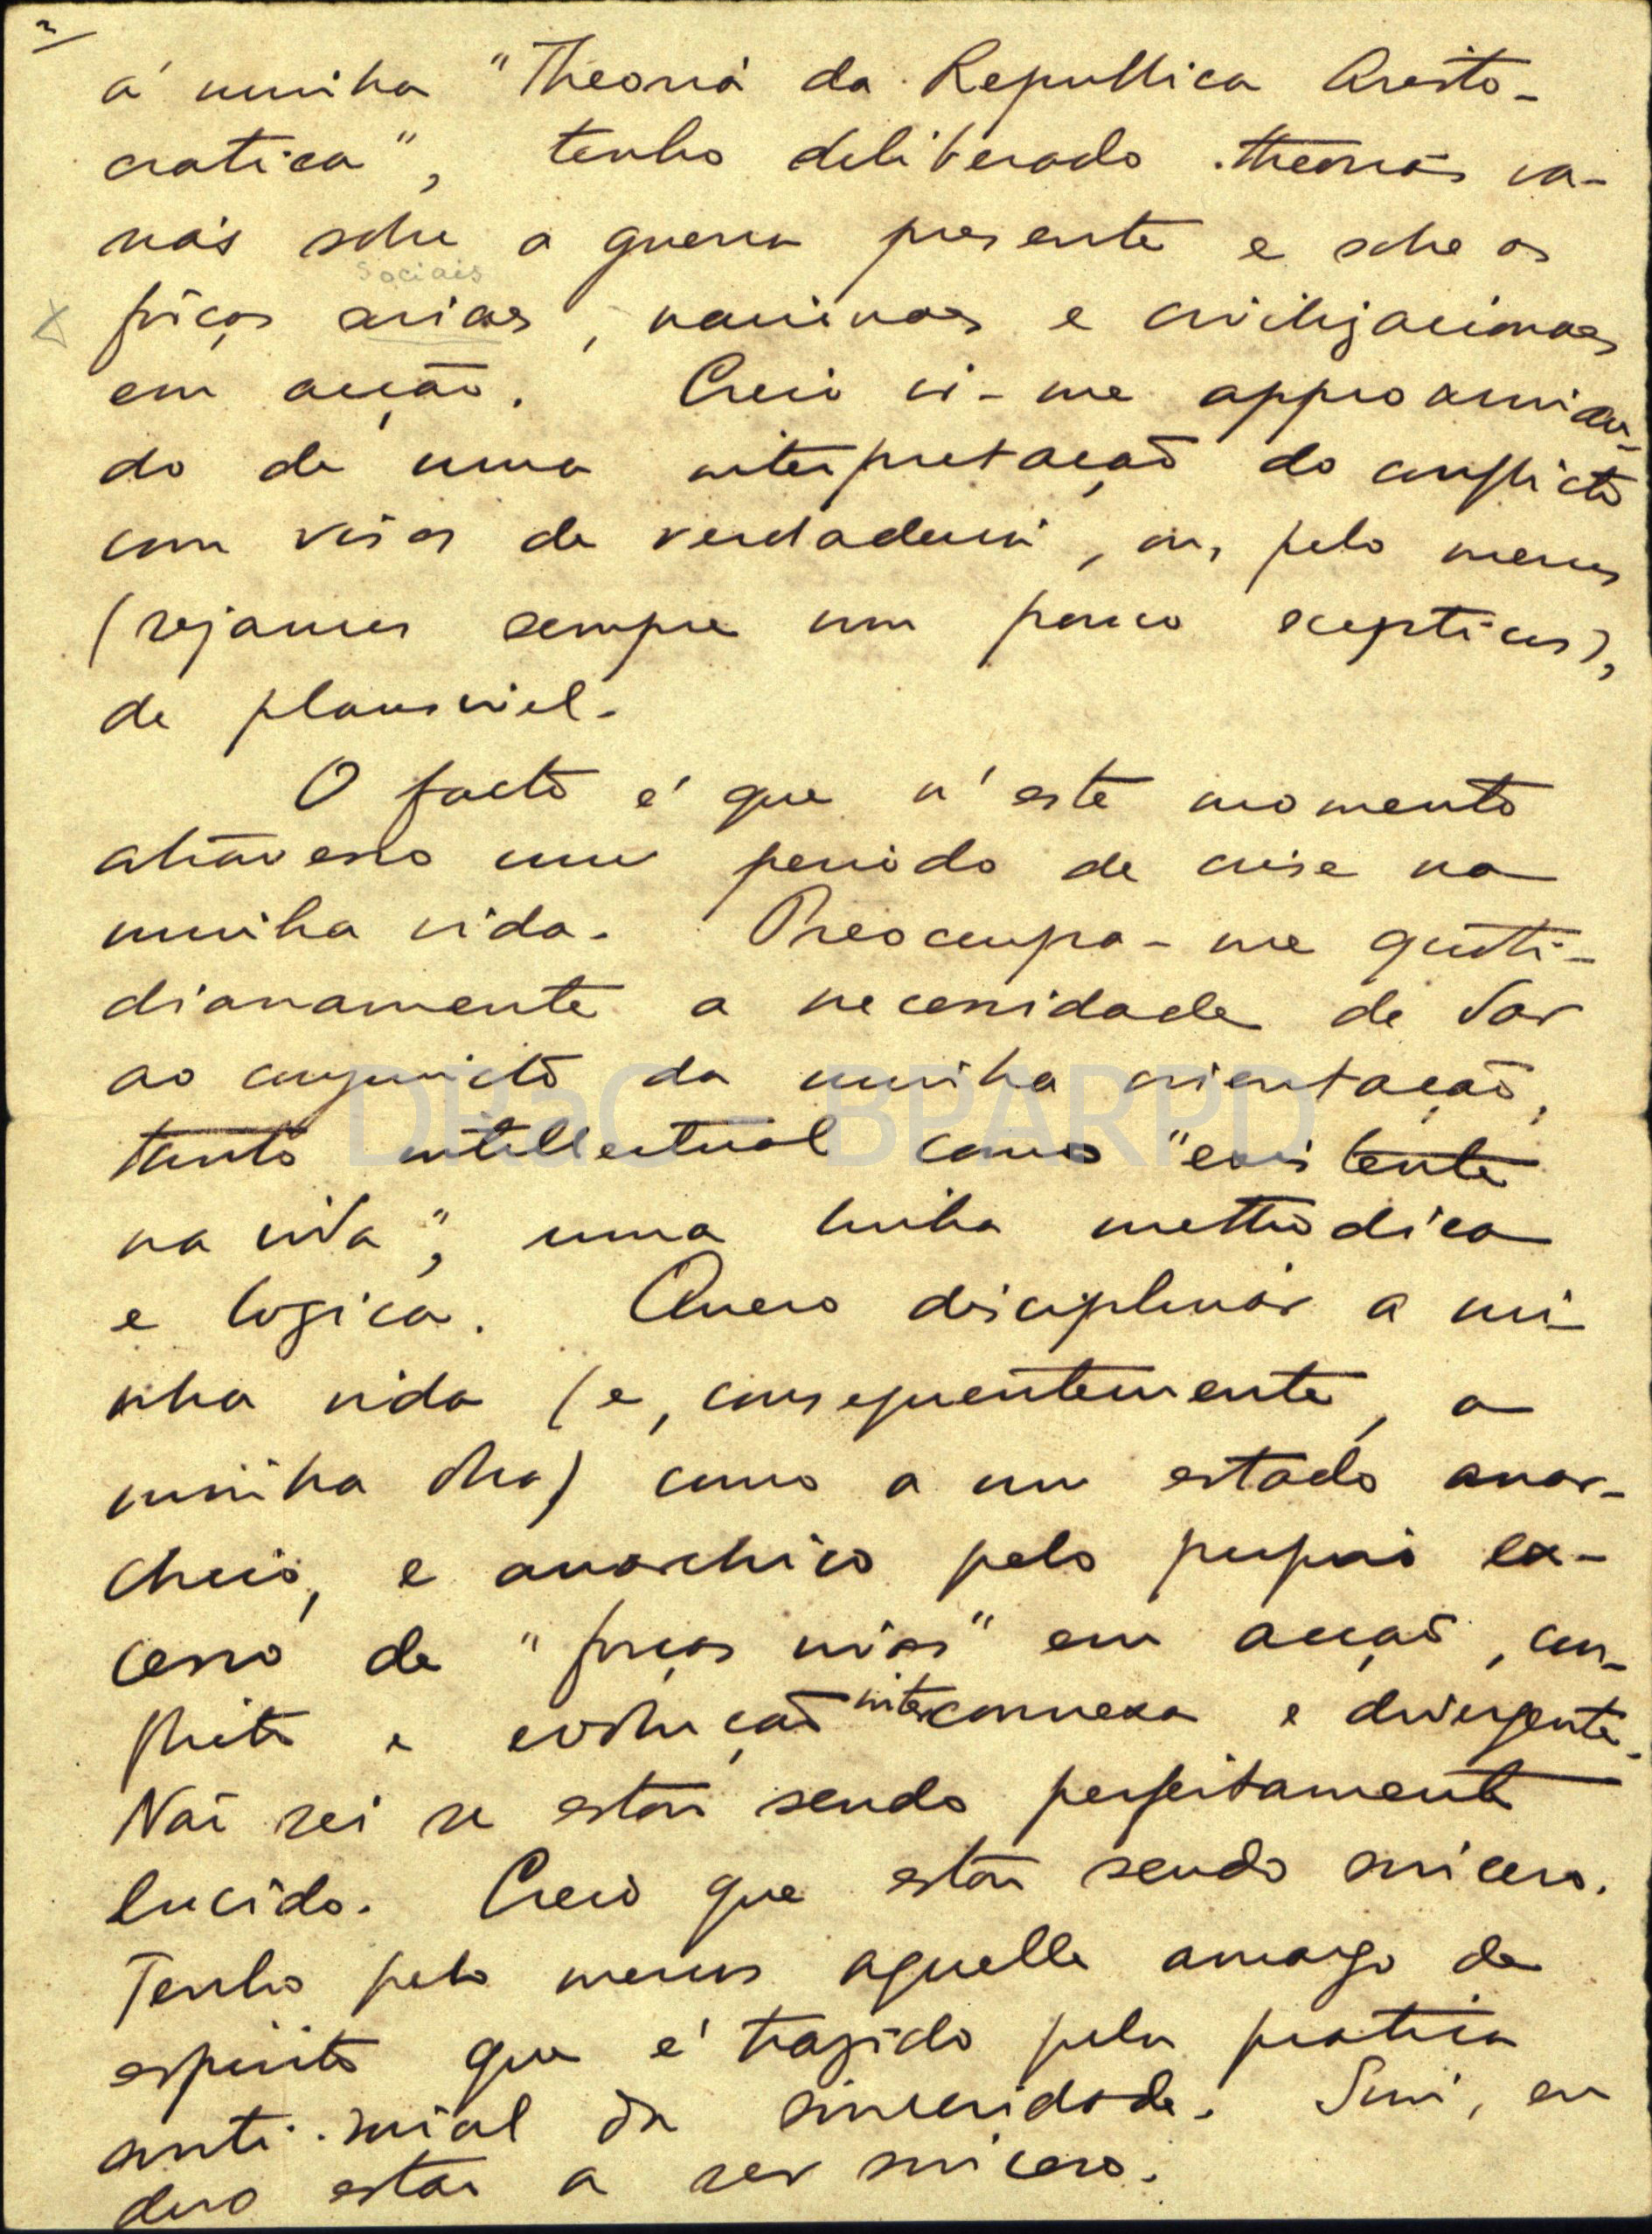 2/
á minha "Theoria da Republica Aristo-
cratica", tenho deliberado theorias va-
rias sobre a guerra presente e sobre as
sociais
X forças sociaes, nacionaes e civilizacionaes
em acção. Creio vir-me approximan-
do de uma interpretação do conflicto
com visos de verdadeira, ou, pelo menos
(sejamos sempre um pouco scepticos),
de plausivel.
O facto é que n'este momento
atravesso um periodo de crise na
minha vida. Preocupa-me quoti-
dianamente a necessidade de dar
ao conjuncto da minha orientação,
tanto intellectual como "existente
na vida", uma linha methodica
e logica. Quero disciplinar a mi-
nha vida (e, consequentemente, a
minha obra) como a um estado anar-
chico, e anarchico pelo proprio ex-
cesso de "forças vivas" em acção, con-
flicto e evolução interconnexa e divergente.
Não sei se estou sendo perfeitamente
lucido. Creio que estou sendo sincero.
Tenho pelo menos aquelle amargo de
espirito que é trazido pela pratica
anti-social da sinceridade. Sim, eu
devo estar a ser sincero.
DRaC - BPARPD